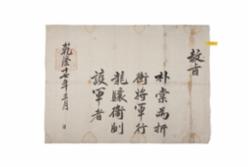 敎旨
朴爲折
衝將軍行
龍驤衛副
護軍者
乾隆年月 日